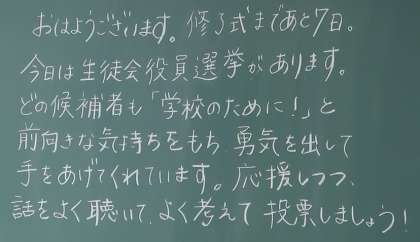 おはようございます。修了式まであと7日。
今日は生徒会役員選挙があります。
どの候補者も「学校のために!」と
前向きな気持ちをもち 勇気を出して
手をあげてくれています。応援しつつ、
話をよく聴いて、よく考えて 投票しましょう!